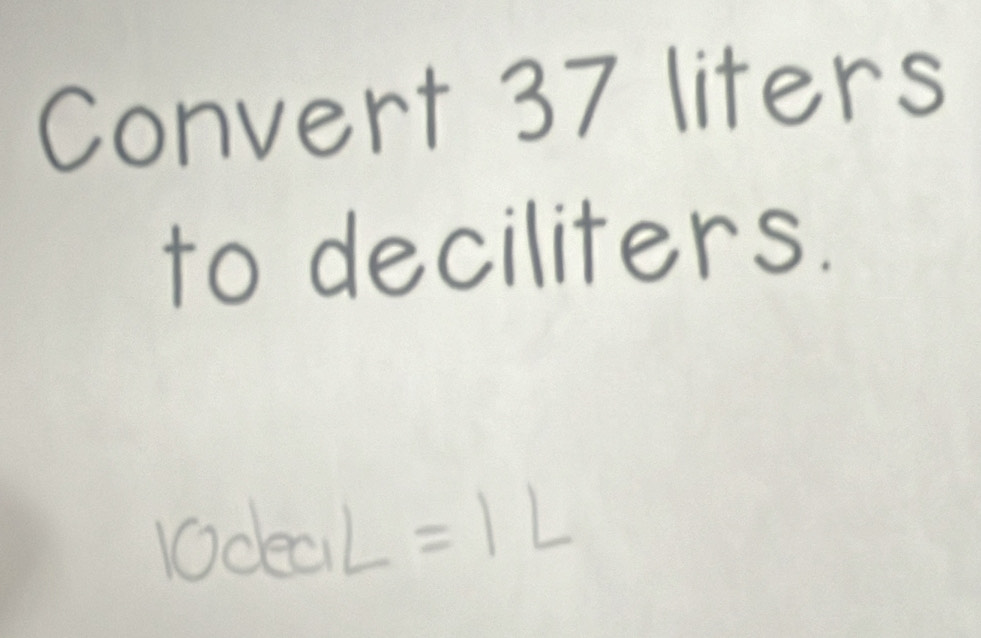 Convert 37 liters
to deciliters.
10deciL = 1 L